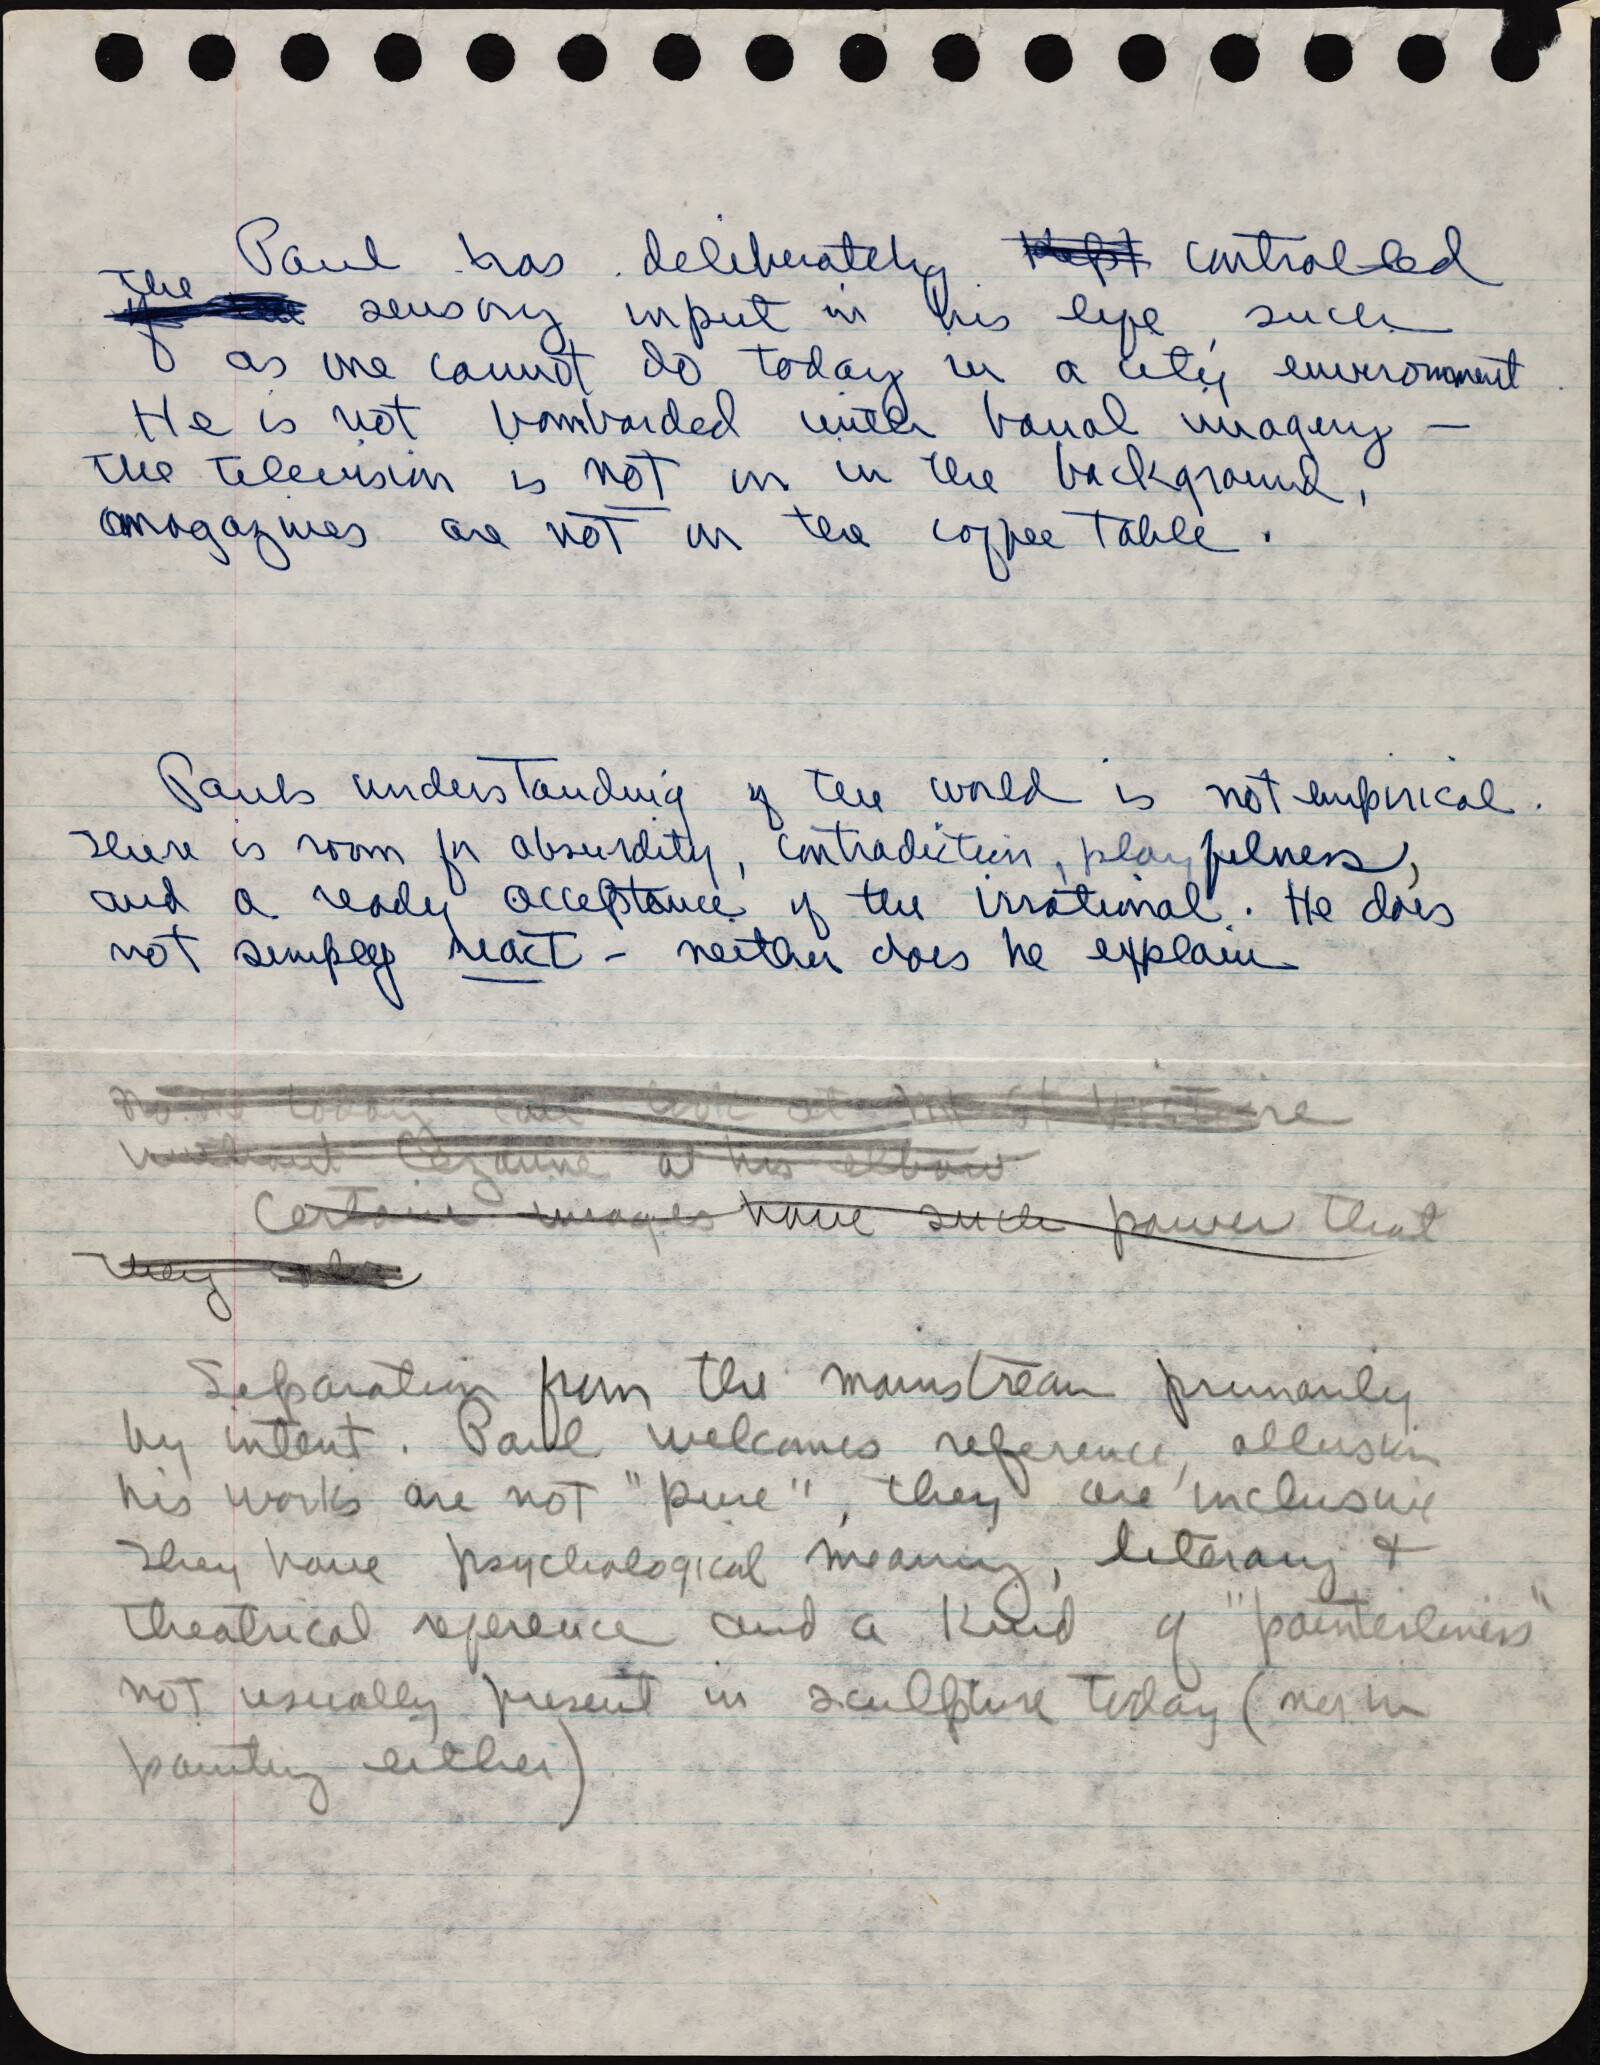 Paul has deliberately kept controlled
the sensory input in his life, such
as one cannot do today in a city environment.
He is not bombarded with banal imagery —
the television is not on in the background,
magazines are not on the coffee table.
Pauls understanding of the world is not empirical.
There is room for absurdity, contradiction, playfulness,
and a ready acceptance of the irrational. He does
not simply react - neither does he explain
No one today can look at Mt St Victoire
without Cezanne at his elbow
Certain images have such power that
they
Separation from the mainstream primarily
by intent. Paul welcomes reference, allusion
his works are not "pure", they are inclusive
They have psychological meaning, literary +
theatrical reference and a kind of "painterliness"
not usually present in sculpture today (nor in
painting either)